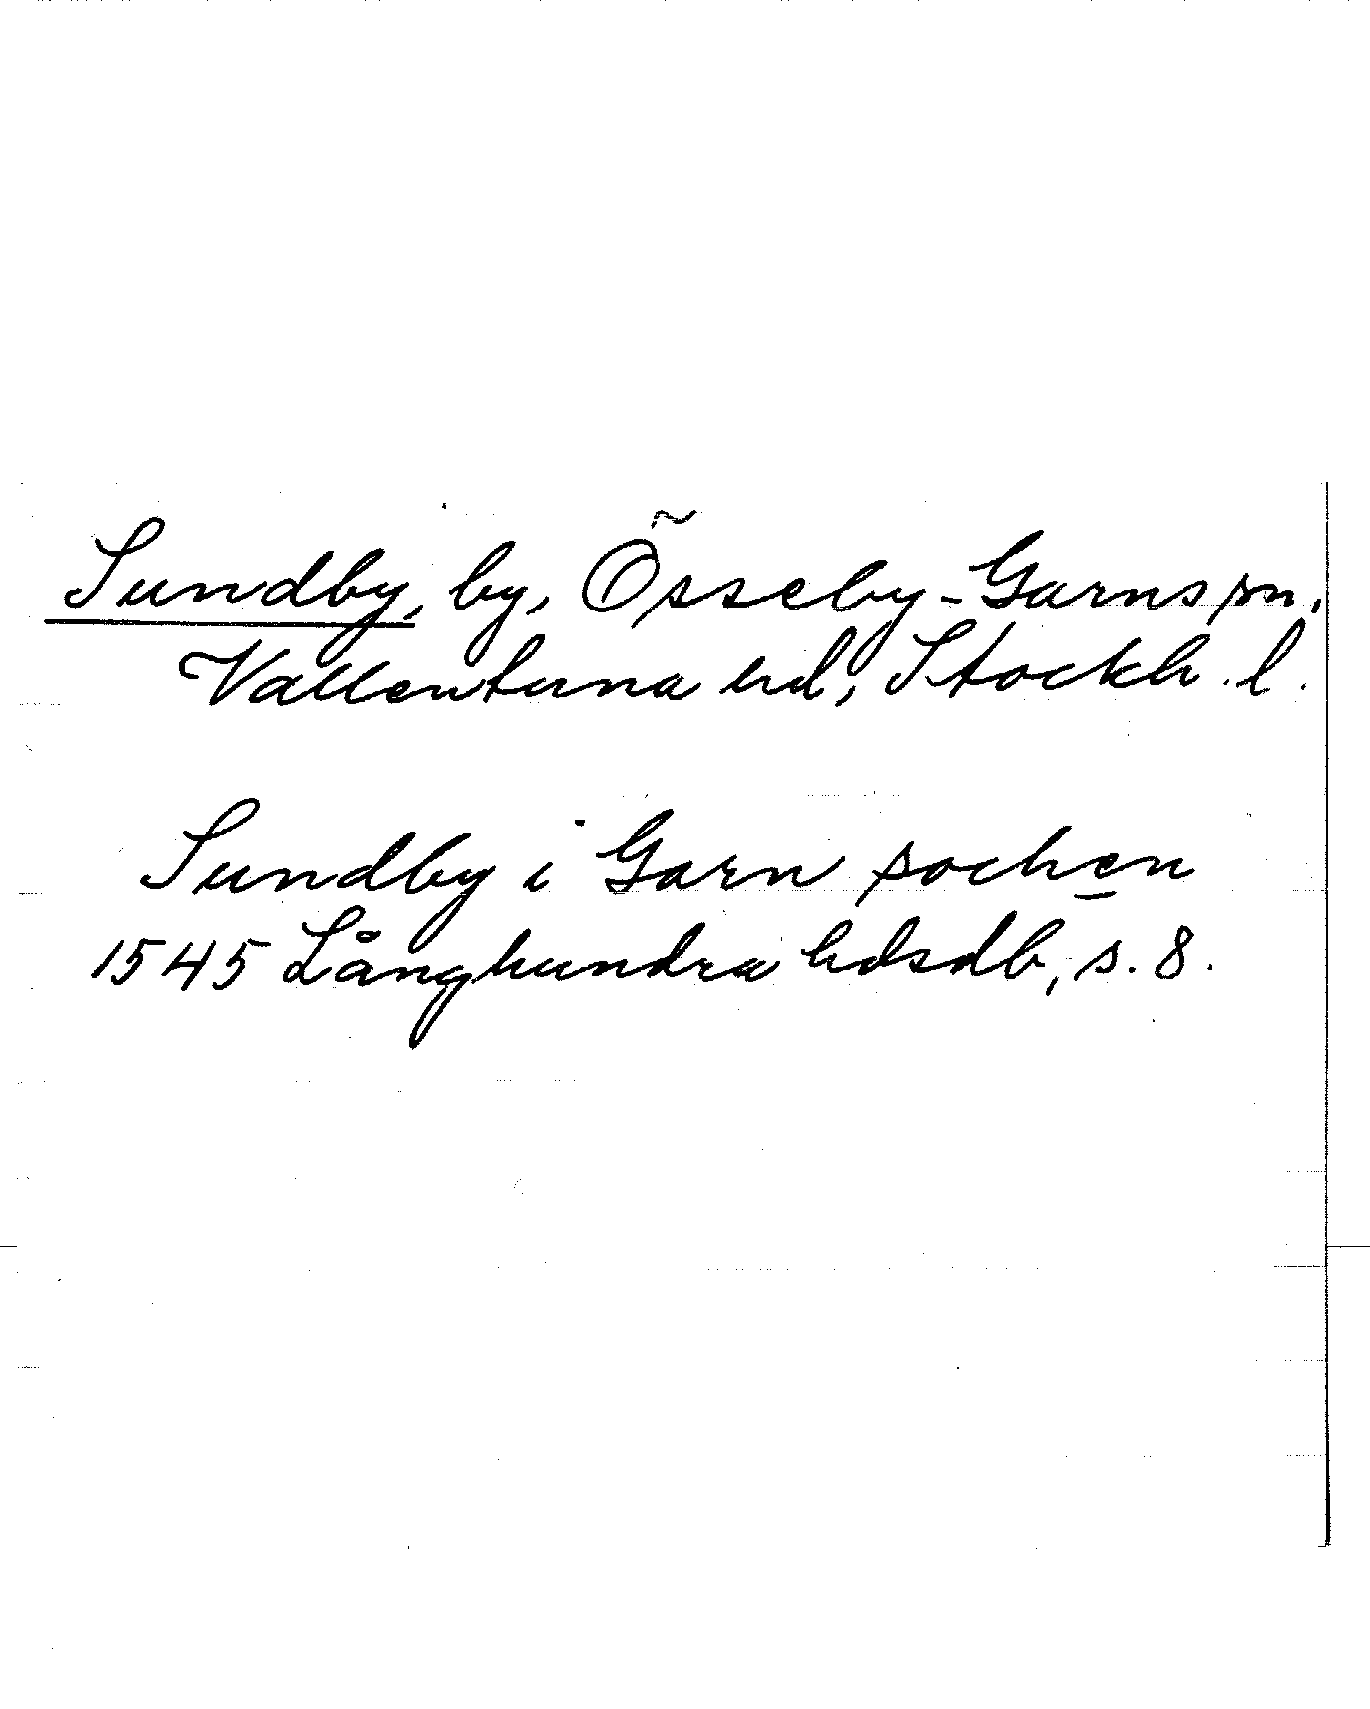 Sundby, by, Össeby-Garns sn.
Vallentuna hd, Stockh. l.
Sundby i Garn sochen
1545 Långhundra hdsdb, s. 8.